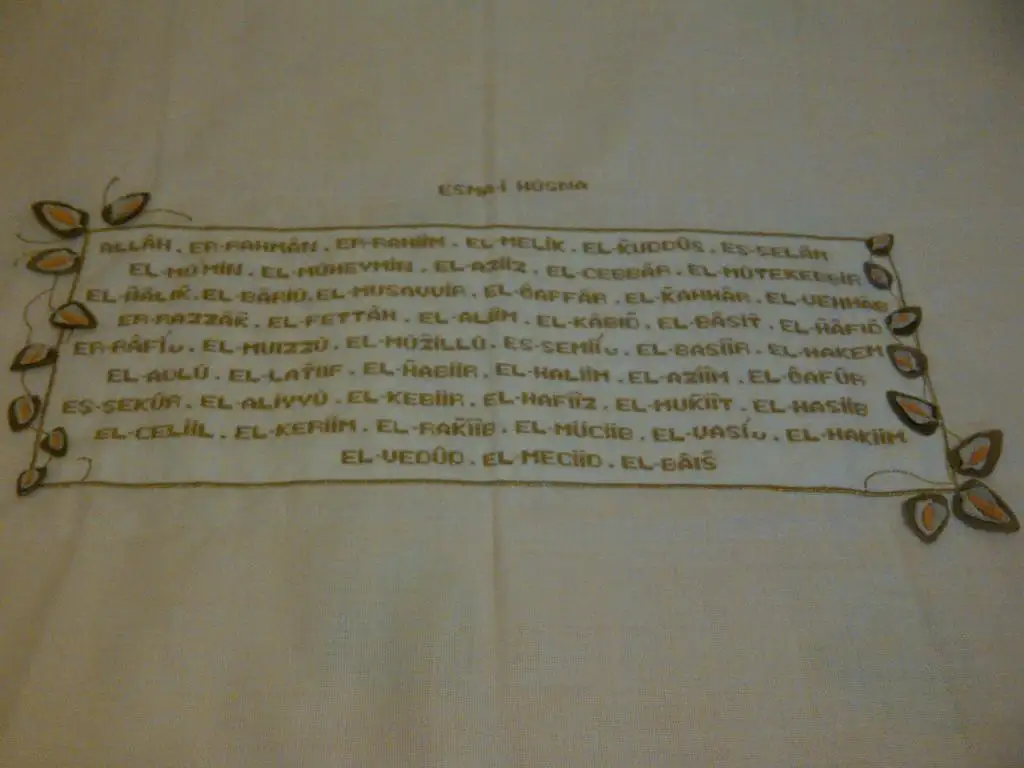 ESMA-İ HÜSNA
ALLÂH . ER-RAHMÂN . ER-RAHİİM . EL-MELİK . EL-K̂UDDÛS . ES-SELÂM
EL-MÜ'MİN . EL-MÜHEYMİN . EL-AZİİZ . EL-CEBBÂR . EL-MÜTEKEBBİR
EL-ĤÂLİK̂ . EL-BÂRİÛ . EL-MUSAVVİR . EL-ĜAFFÂR . EL-K̂AHHÂR . EL-VEHHÂB
ER-RAZZÂK̂ . EL-FETTÂH . EL-ALİİM . EL-KÂBID̂ . EL-BÂSIT̂ . EL-ĤÂFID̂
ER-RÂFİ . EL-MUIZZÜ . EL-MÜẐİLLÜ . ES-SEMİİ . EL-BASİİR . EL-HAKEM
EL-ADLÜ . EL-LAT̂İİF . EL-ĤABİİR . EL-HALİİM . EL-AZİİM . EL-ĜAFÛR
EŞ-ŞEKÛR . EL-ALİYYÜ . EL-KEBİİR . EL-HAFİİZ . EL-MUK̂İİT . EL-HASİİB
EL-CELİİL . EL-KERİİM . EL-RAK̂İİB . EL-MÜCİİB . EL-VASİ . EL-HAKİİM
EL-VEDÛD . EL-MECİİD . EL-BÂİŜ